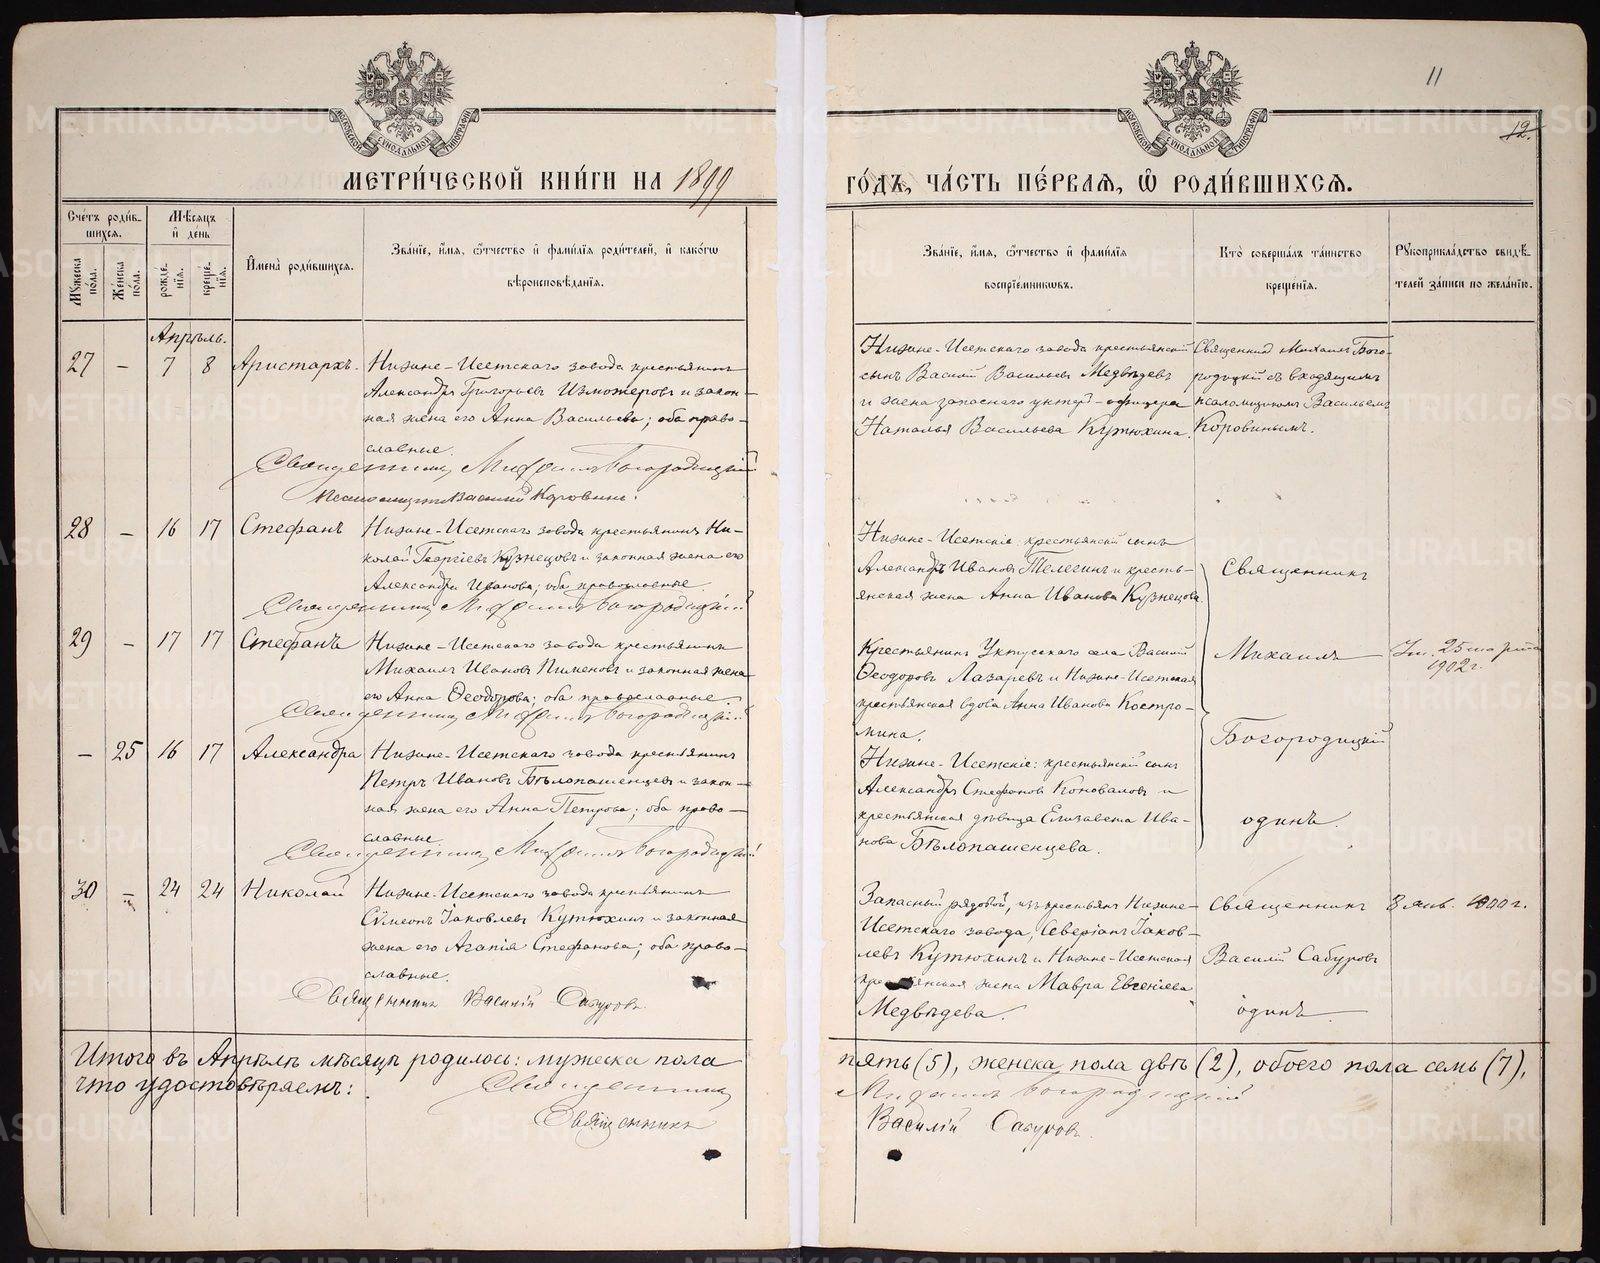 11
12.
МОСКОВСКОЙ СѴНОДАЛЬНОЙ ТИПОГРАФІИ
МОСКОВСКОЙ СѴНОДАЛЬНОЙ ТИПОГРАФІИ
МЕТРИ́ЧЕСКОЙ КНИ́ГИ НА 1899
ГО́ДЪ, ЧА́СТЬ ПЕ́РВАѦ, Ѡ҆ РОДИ́ВШИХСѦ.
Сче́тъ роди́в-
шихсѧ.
Мѣ́сѧцъ
и҆ де́нь
Мꙋ́жеска
по́ла.
Же́нска
по́ла.
рожде-
нїѧ.
креще-
нїѧ.
И҆мена̀ роди́вшихсѧ.
Зва́нїе, и҆́мѧ, ѻ҆́тчество и҆ фамі́лїѧ роди́телей, и҆ како́гѡ
вѣроисповѣ́данїѧ.
Зва́нїе, и҆́мѧ, ѻ҆́тчество и҆ фамі́лїѧ
воспрїе́мникѡвъ.
Кто̀ соверша́лъ та́инство
креще́нїѧ.
Рꙋкоприкла́дство свидѣ́-
телей за́писи по жела́нїю.
Апрѣль.
27 – 7 8 Аристархъ. Нижне-Исетскаго завода крестьянинъ
Александръ Григорьевъ Изможеровъ и закон-
ная жена его Анна Васильева; оба право-
славные.
Священникъ Михаилъ Богородицкій
Псаломщикъ Василій Коровинъ.
Нижне-Исетскаго завода крестьянскій
сынъ Василій Васильевъ Медвѣдевъ
и жена запаснаго унтеръ-офицера
Наталья Васильева Кутюхина.
Священникъ Михаилъ Бого-
родицкій съ входящимъ
псаломщикомъ Васильемъ
Коровинымъ.
28 – 16 17 Стефанъ Нижне-Исетскаго завода крестьянинъ Ни-
колай Георгіевъ Кузнецовъ и законная жена его
Александра Иванова; оба православные.
Священникъ Михаилъ Богородицкій
Нижне-Исетскіе: крестьянскій сынъ
Александръ Ивановъ Телегинъ и кресть-
янская жена Анна Иванова Кузнецова.
Священникъ
29 – 17 17 Стефанъ Нижне-Исетскаго завода крестьянинъ
Михаилъ Ивановъ Пименовъ и законная жена
его Анна Ѳеодорова; оба православные.
Священникъ Михаилъ Богородицкій
Крестьянинъ Уктусскаго села Василій
Ѳеодоровъ Лазаревъ и Нижне-Исетская
крестьянская вдова Анна Иванова Костро-
мина.
Михаилъ
25
1902 г.
– 25 16 17 Александра Нижне-Исетскаго завода крестьянинъ
Петръ Ивановъ Бѣлопашенцевъ и закон-
ная жена его Анна Петрова; оба право-
славные.
Священникъ Михаилъ Богородицкій
Нижне-Исетскіе: крестьянскій сынъ
Александръ Стефановъ Коноваловъ и
крестьянская дѣвица Елизавета Ива-
нова Бѣлопашенцева.
Богородицкій
одинъ.
30 – 24 24 Николай Нижне-Исетскаго завода крестьянинъ
Сѵмеонъ Іаковлевъ Кутюхинъ и законная
жена его Агапія Стефанова; оба право-
славные.
Священникъ Василій Сабуровъ.
Запасный рядовой, изъ крестьянъ Нижне-
Исетскаго завода, Северіанъ Іаков-
левъ Кутюхинъ и Нижне-Исетская
крестьянская жена Мавра Евгеніева
Медвѣдева.
Священникъ
Василій Сабуровъ
одинъ.
8 янв. 1900 г.
Итого въ Апрѣлѣ мѣсяцѣ родилось: мужеска пола пять (5), женска пола двѣ (2), обоего пола семь (7),
что удостовѣряемъ: Священникъ Михаилъ Богородицкій
Священникъ Василій Сабуровъ.
METRIKI.GASO-URAL.RU